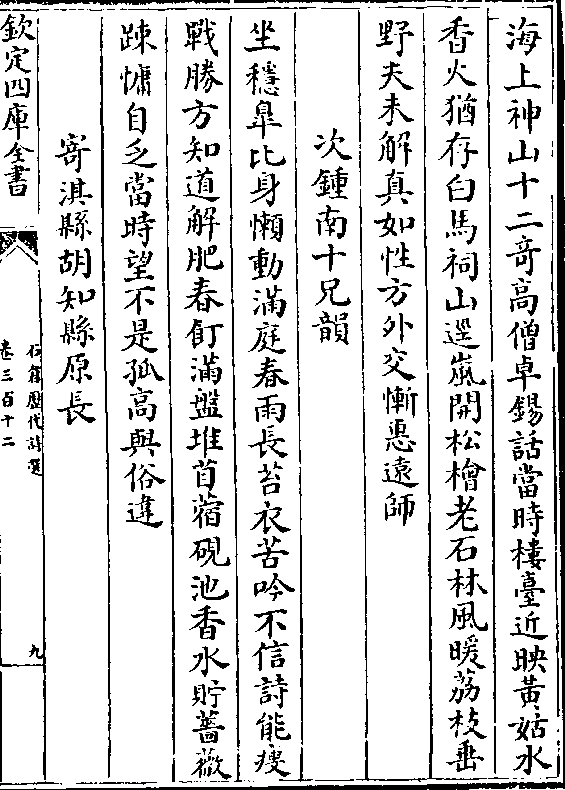 海上神山十二竒髙僧卓錫話當時樓臺近映黃姑水
香火猶存白馬祠山逕嵐開松檜老石林風暖荔枝垂
野夫未解真如性方外交慚惠遠師
次鍾南十兄韻
坐穩臯比身懶動滿庭春雨長苔衣苦吟不信詩能瘦
戰勝方知道解肥春飣滿盤堆苜蓿硯池香水貯薔薇
踈慵自乏當時望不是孤髙與俗違
寄淇縣胡知縣原長
欽定四庫全書
石倉歴代詩選
卷三百十二
九